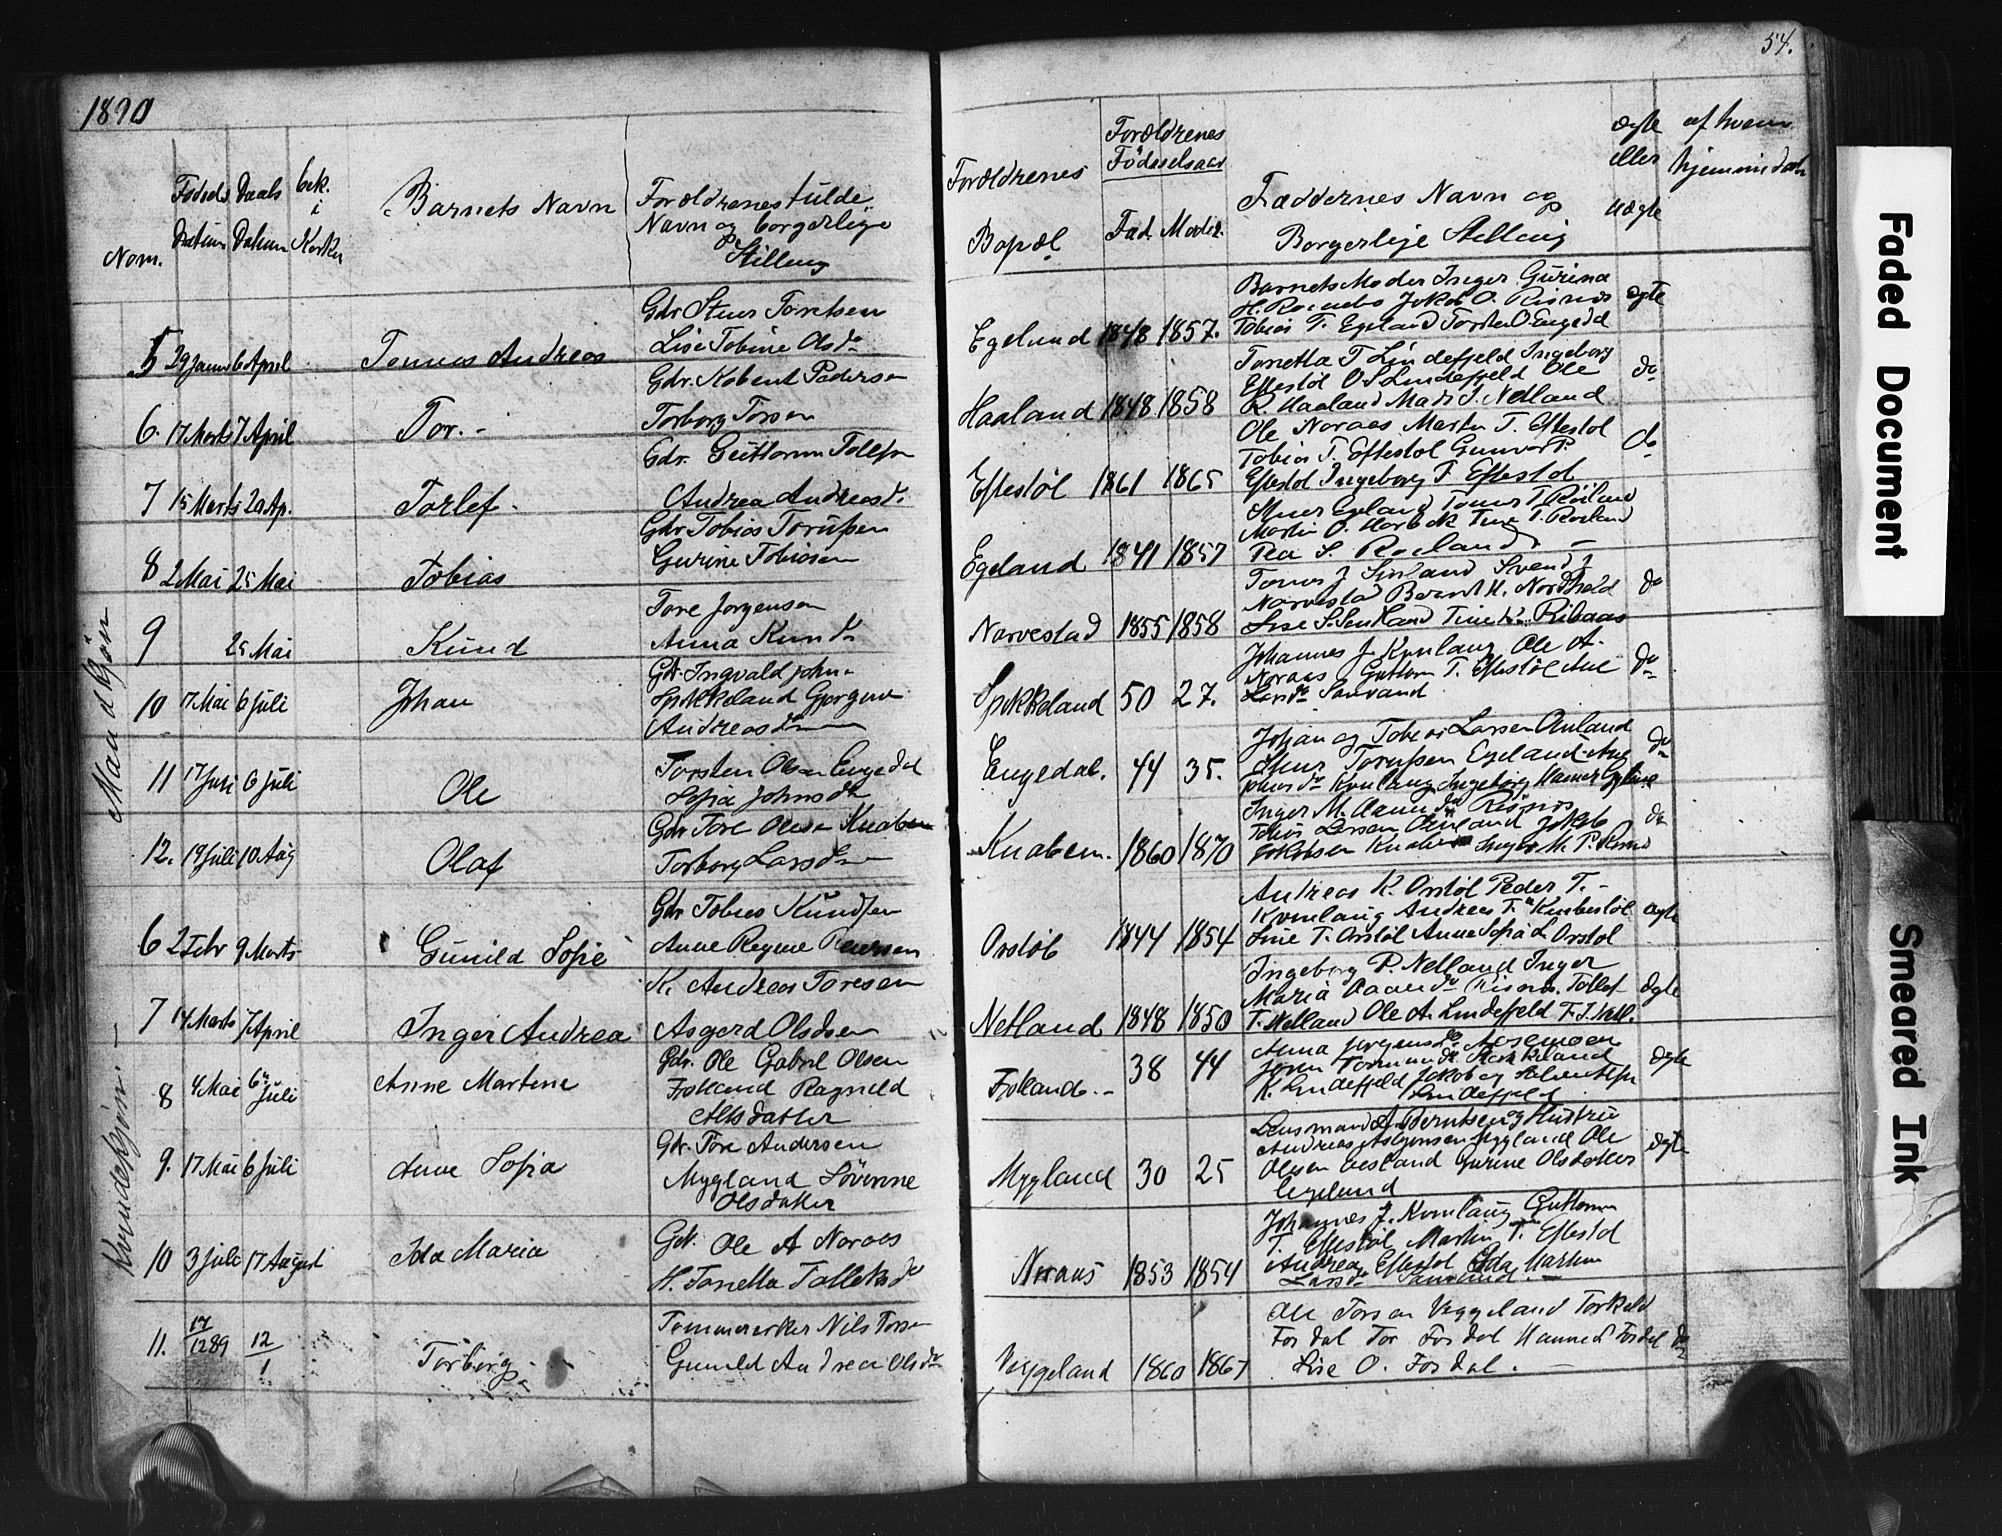 1890
54.
Nom.
Fødsels Datum
Daabs Datum
bek. i Kirken
Barnets Navn
Forældrenes fulde
Navn og borgerlige
Stilling
Forældrenes
Bopæl
Forældrenes
Fødselsaar
Fad. Moder.
Faddernes Navn og
Borgerlige Stilling
Ægte
eller
Uægte
af hvem
Maadkjøn
5 29 Janu 6 April Tønnes Andreas
Gdr Stner Toretsen
Lise Tobine Olsd.
Egeland 1848 1857.
Barnets Moder Inger Gurina
Jakob O. Risnes
Tobias T. Egeland Torsten O. Engedal
ægte
6. 17 Marts 7 April Tor. -
Gdr. Kobent Pedersen
Torborg Torsen
Haaland 1848 1858
Toretta T Lindefjeld Ingeborg
Eftestøl O S Lindefjeld Ole
R. Haaland Mads I. Netland
do
7 15 Marts 20 Ap. Torlef.
Gdr. Guttorm Tollefsn
Andrea Andreasd.
Eftestøl 1861 1865
Ole Noraas Martin T. Eftestøl
Tobias T. Eftestøl Gunvor P.
Eftestøl Ingeborg T Eftestøl
do
8 2 Mai 25 Mai Tobias
Gdr Tobias Torupsen
Gurine Tobiasen
Egeland 1841 1857
Stner Egeland Tønnes T. Roiland
Martin O. Hørbek Tine T. Roiland
Tea S. Roeland -
9 25 Mai Knud
Tore Jørgensen
Anna Knud
Narvestad 1855 1858
Tønnes J Sirland Svend J
Narvestad Berent H. Nordhold
do
10 17 Mai 6 Juli Johan
Gdr. Ingvald John
Spikkeland Gjorgine
Andreasd
Spikkeland 50 27.
Johannes J. Kvnlaug Ole A.
Noraas Guttorm T. Eftestøl Ane
Larsd. Sanvand
do
11 17 Juni 6 Juli Ole
Torsten Olsen Engedal
Sofia Johnsd
Engedal. 44 35.
Johan og Tobias Larsen Auland
Stner Torupsen Egeland Ane
Kvnlaug Ingeborg
do
12. 19 Juli 10 Aug Olaf
Gdr Tore Olsen Knaben
Torborg Larsd
Knaben. 1860 1870
Inger M. Aanend Risnes
Tobias Larsen Auland Jakob
Jakobsen Knaben Inger M. P.
do
Kvindekjøn. -
6 2 Febr 9 Marts Gunild Sofie
Gdr Tobias Knudsen
Anne Regine
Orstøl 1844 1854
Andreas K. Orstøl Peder T. -
Kvnlaug Andreas T.
Line T. Orstøl Anne Sofia L Orstøl
ægte
7 14 Marts 7 April Inger Andrea
K. Andreas Toresen
Asgerd Olsdsen
Netland 1848 1850
Ingeborg P. Netland Inger
Maria Aand Risnes. Tollef
T. Netland Ole A. Lindefjeld T. I. Netl.
ægte
8 4 Mai 6 Juli Anne Martine
Gdr. Ole Gabrel Olsen
Fokland Ragnild
Alfsdatter
Fokland. - 38 44
Anna Jørgensd Mosemoen
K. Lindefjeld Jakob og
Lindefjeld
ægte
9. 17 Mai 6 Juli Anne Sofia
Gdr. Tore Andersen
Mygland Søverine
Olsdatter
Mygland 30 25
Lensmand A Berntsen og Hustru
Andreas Asbjønsen Mygland Ole
Olsen Eesland Gurine Olsdatter
Egeland
ægte
10 3 Juli 17 August Ida Maria
Gdr. Ole A Noraas
H. Toretta Tolleksd
Noraas 1853 1854
Johannes J. Kvnlaug Guttorm
T. Eftestøl Martin T. Eftestøl
Andreas Eftestøl Eda Martine
Larsd. Sanvand. -
11. 17/12 89 12/1 Torborg -
Tømmerarker Nils Torsen
Gunild Andrea Olsd.
Veggeland 1860 1867
Ole Torsen Veggeland Torkeld
Fosdal Tor Fosdal Hanne Fosdal
Lise O. Fosdal. -
do
Faded Document
Smeared Ink